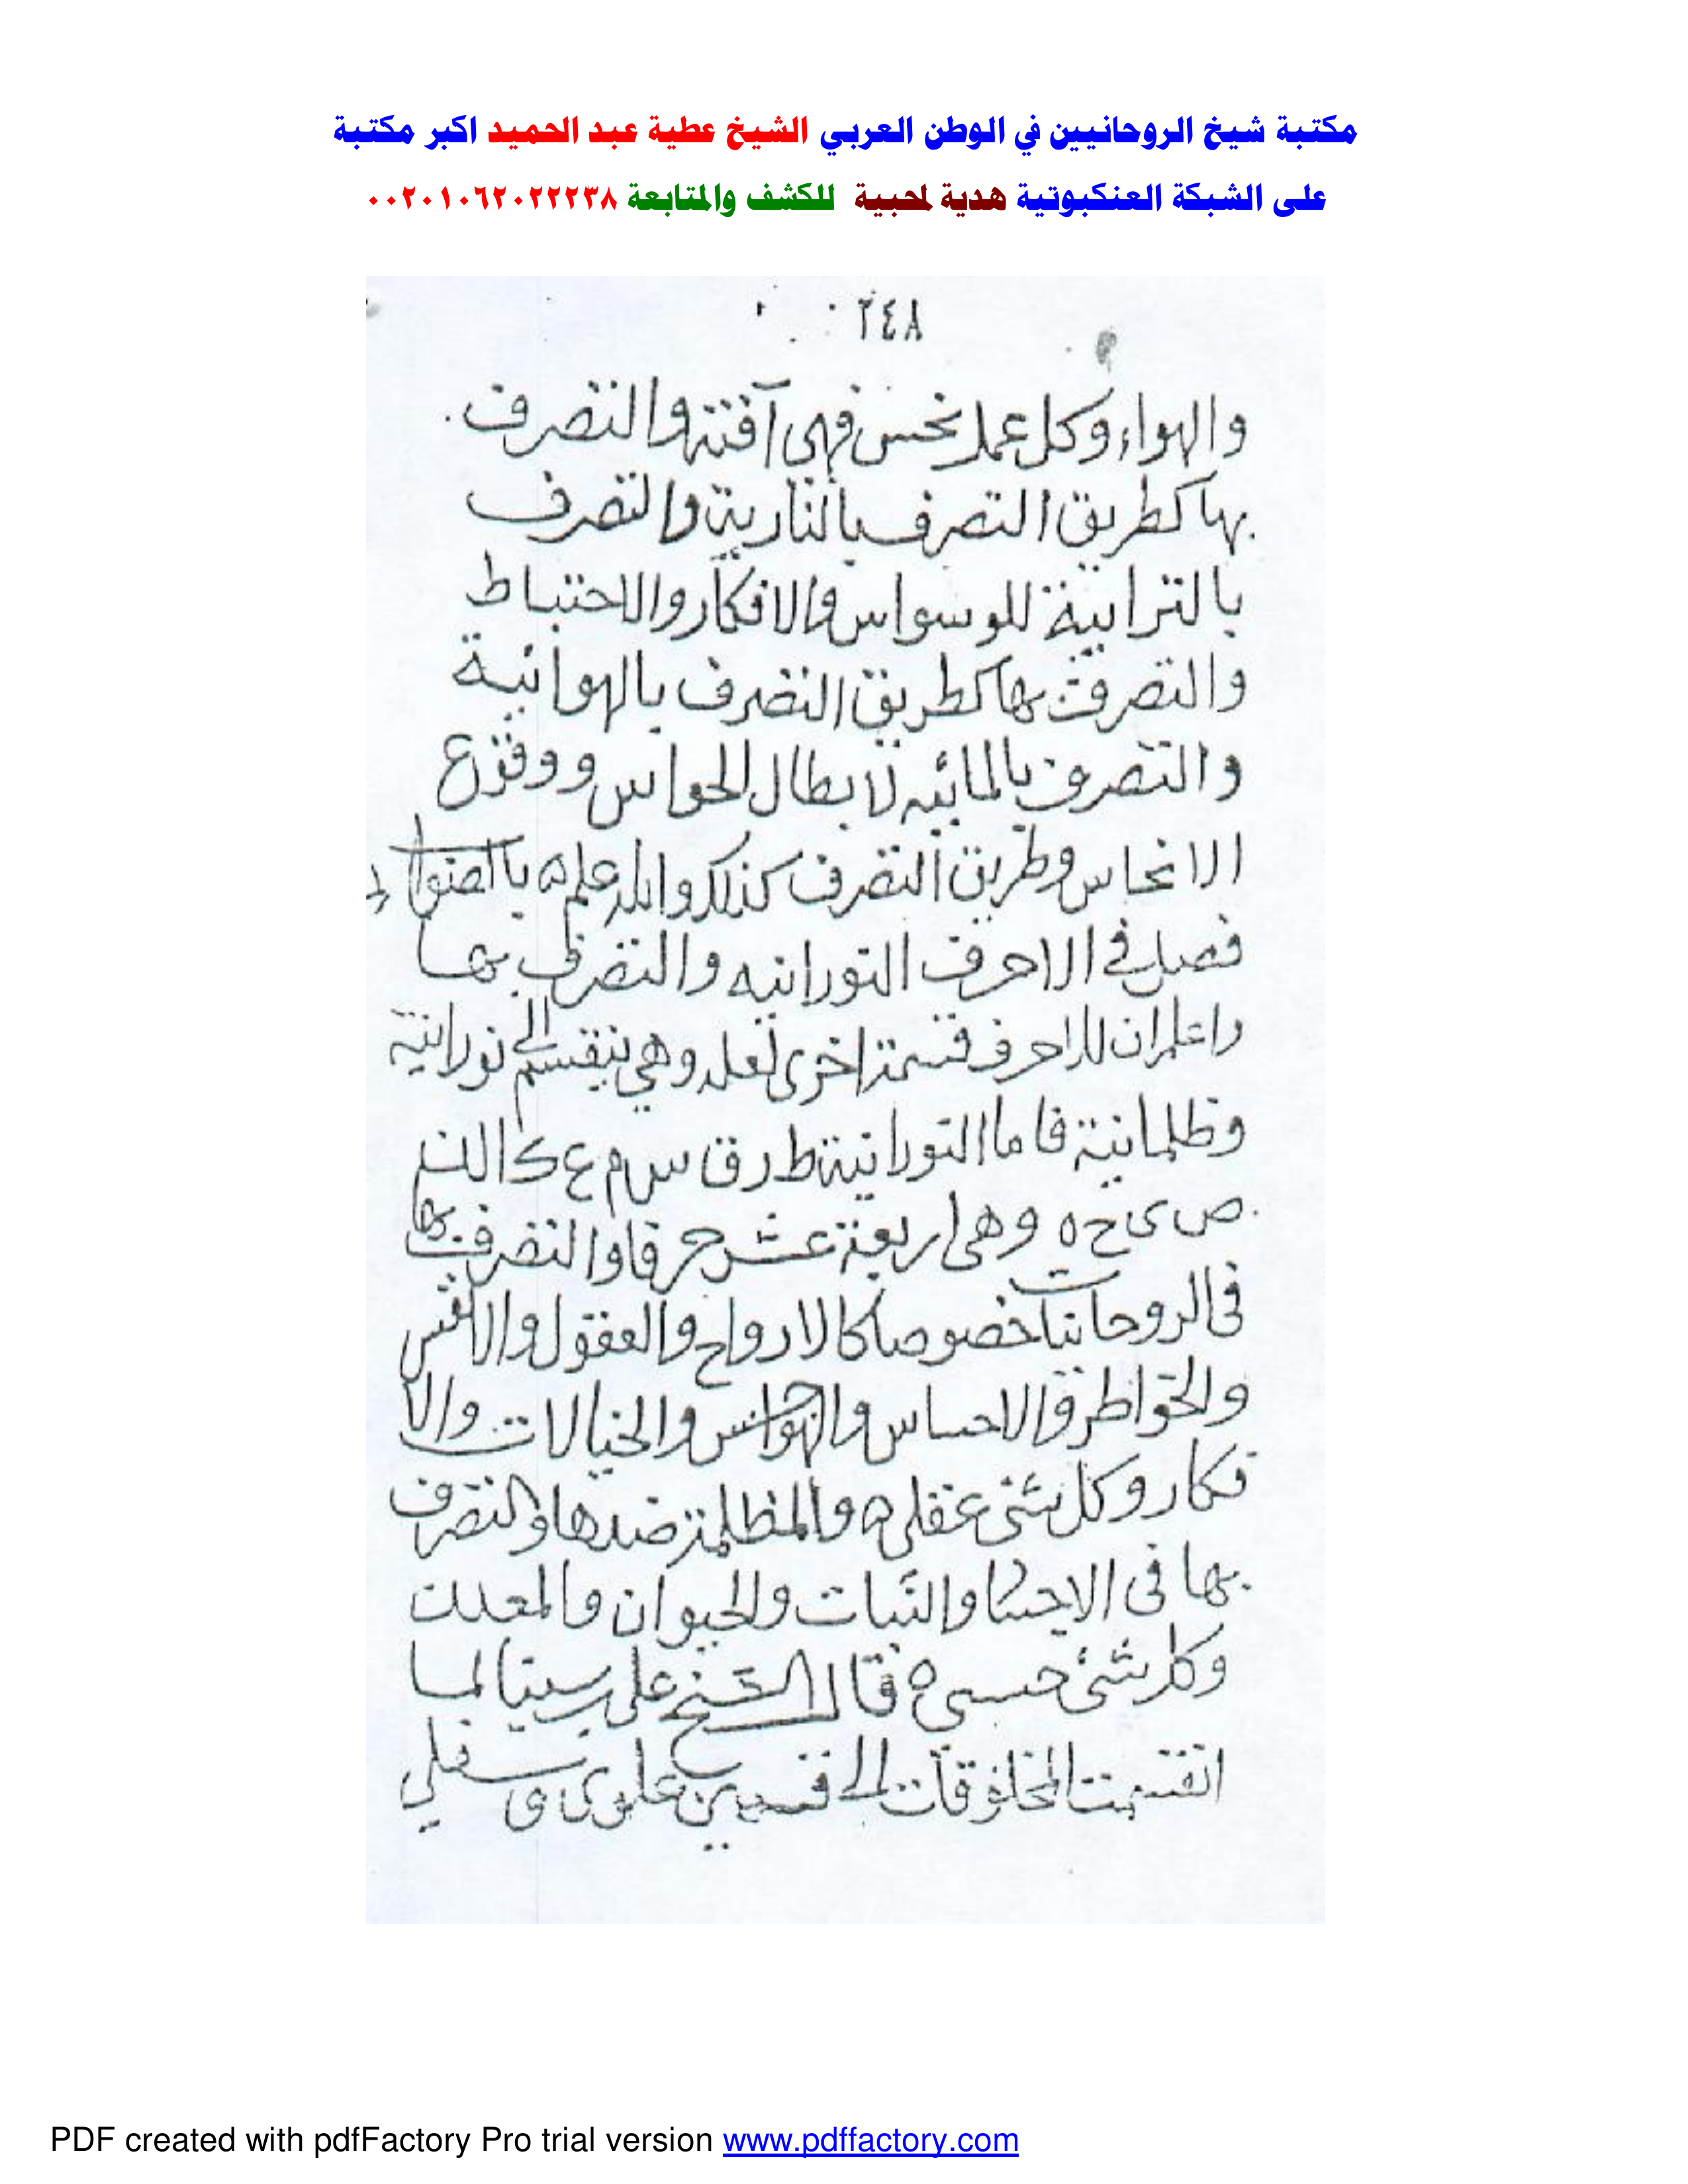 مكتبة شيخ الروحانيين في الوطن العربي الشيخ عطية عبد الحميد اكبر مكتبة
على الشبكة العنكبوتية هدية لمحبية للكشف والمتابعة ٠٠٢٠١٠٦٢٠٢٢٢٣٨
٢٤٨
والهواء وكل عمل نحس فهى آفته والتصرف
بها كطريق التصرف بالنارية والتصرف
بالترابية للوسواس والافكار والاحتباط
والتصرف بها كطريق التصرف بالهوائية
والتصرف بالمائيه لابطال الحواس ووقوع
الانحاس وطريق التصرف كذلك والله علم ه بالصواب
فصل في الاحرف النورانيه والتصرف بها
واعلم ان للاحرف قسمة اخرى وهي ينقسم الى نورانية
وظلمانية فاما النورانية ط ر ق س م ع ك ا ل ن
ص ى ح ه وهى اربعة عشر حرفا والتصرف بها
فى الروحانيات خصوصا كالارواح والعقول والانفس
والخواطر والاحساس والهواجس والخيالات والا
فكار وكل شئ عقلى ه والمظلمة ضدها والتصرف
بها فى الاجسا والنبات والحيوان والمعدن
وكل شئ حسى ه قال الشيخ على بن سينا لما
انقسمت المخلوقات الى قسمين علوى و سفلي
PDF created with pdfFactory Pro trial version www.pdffactory.com